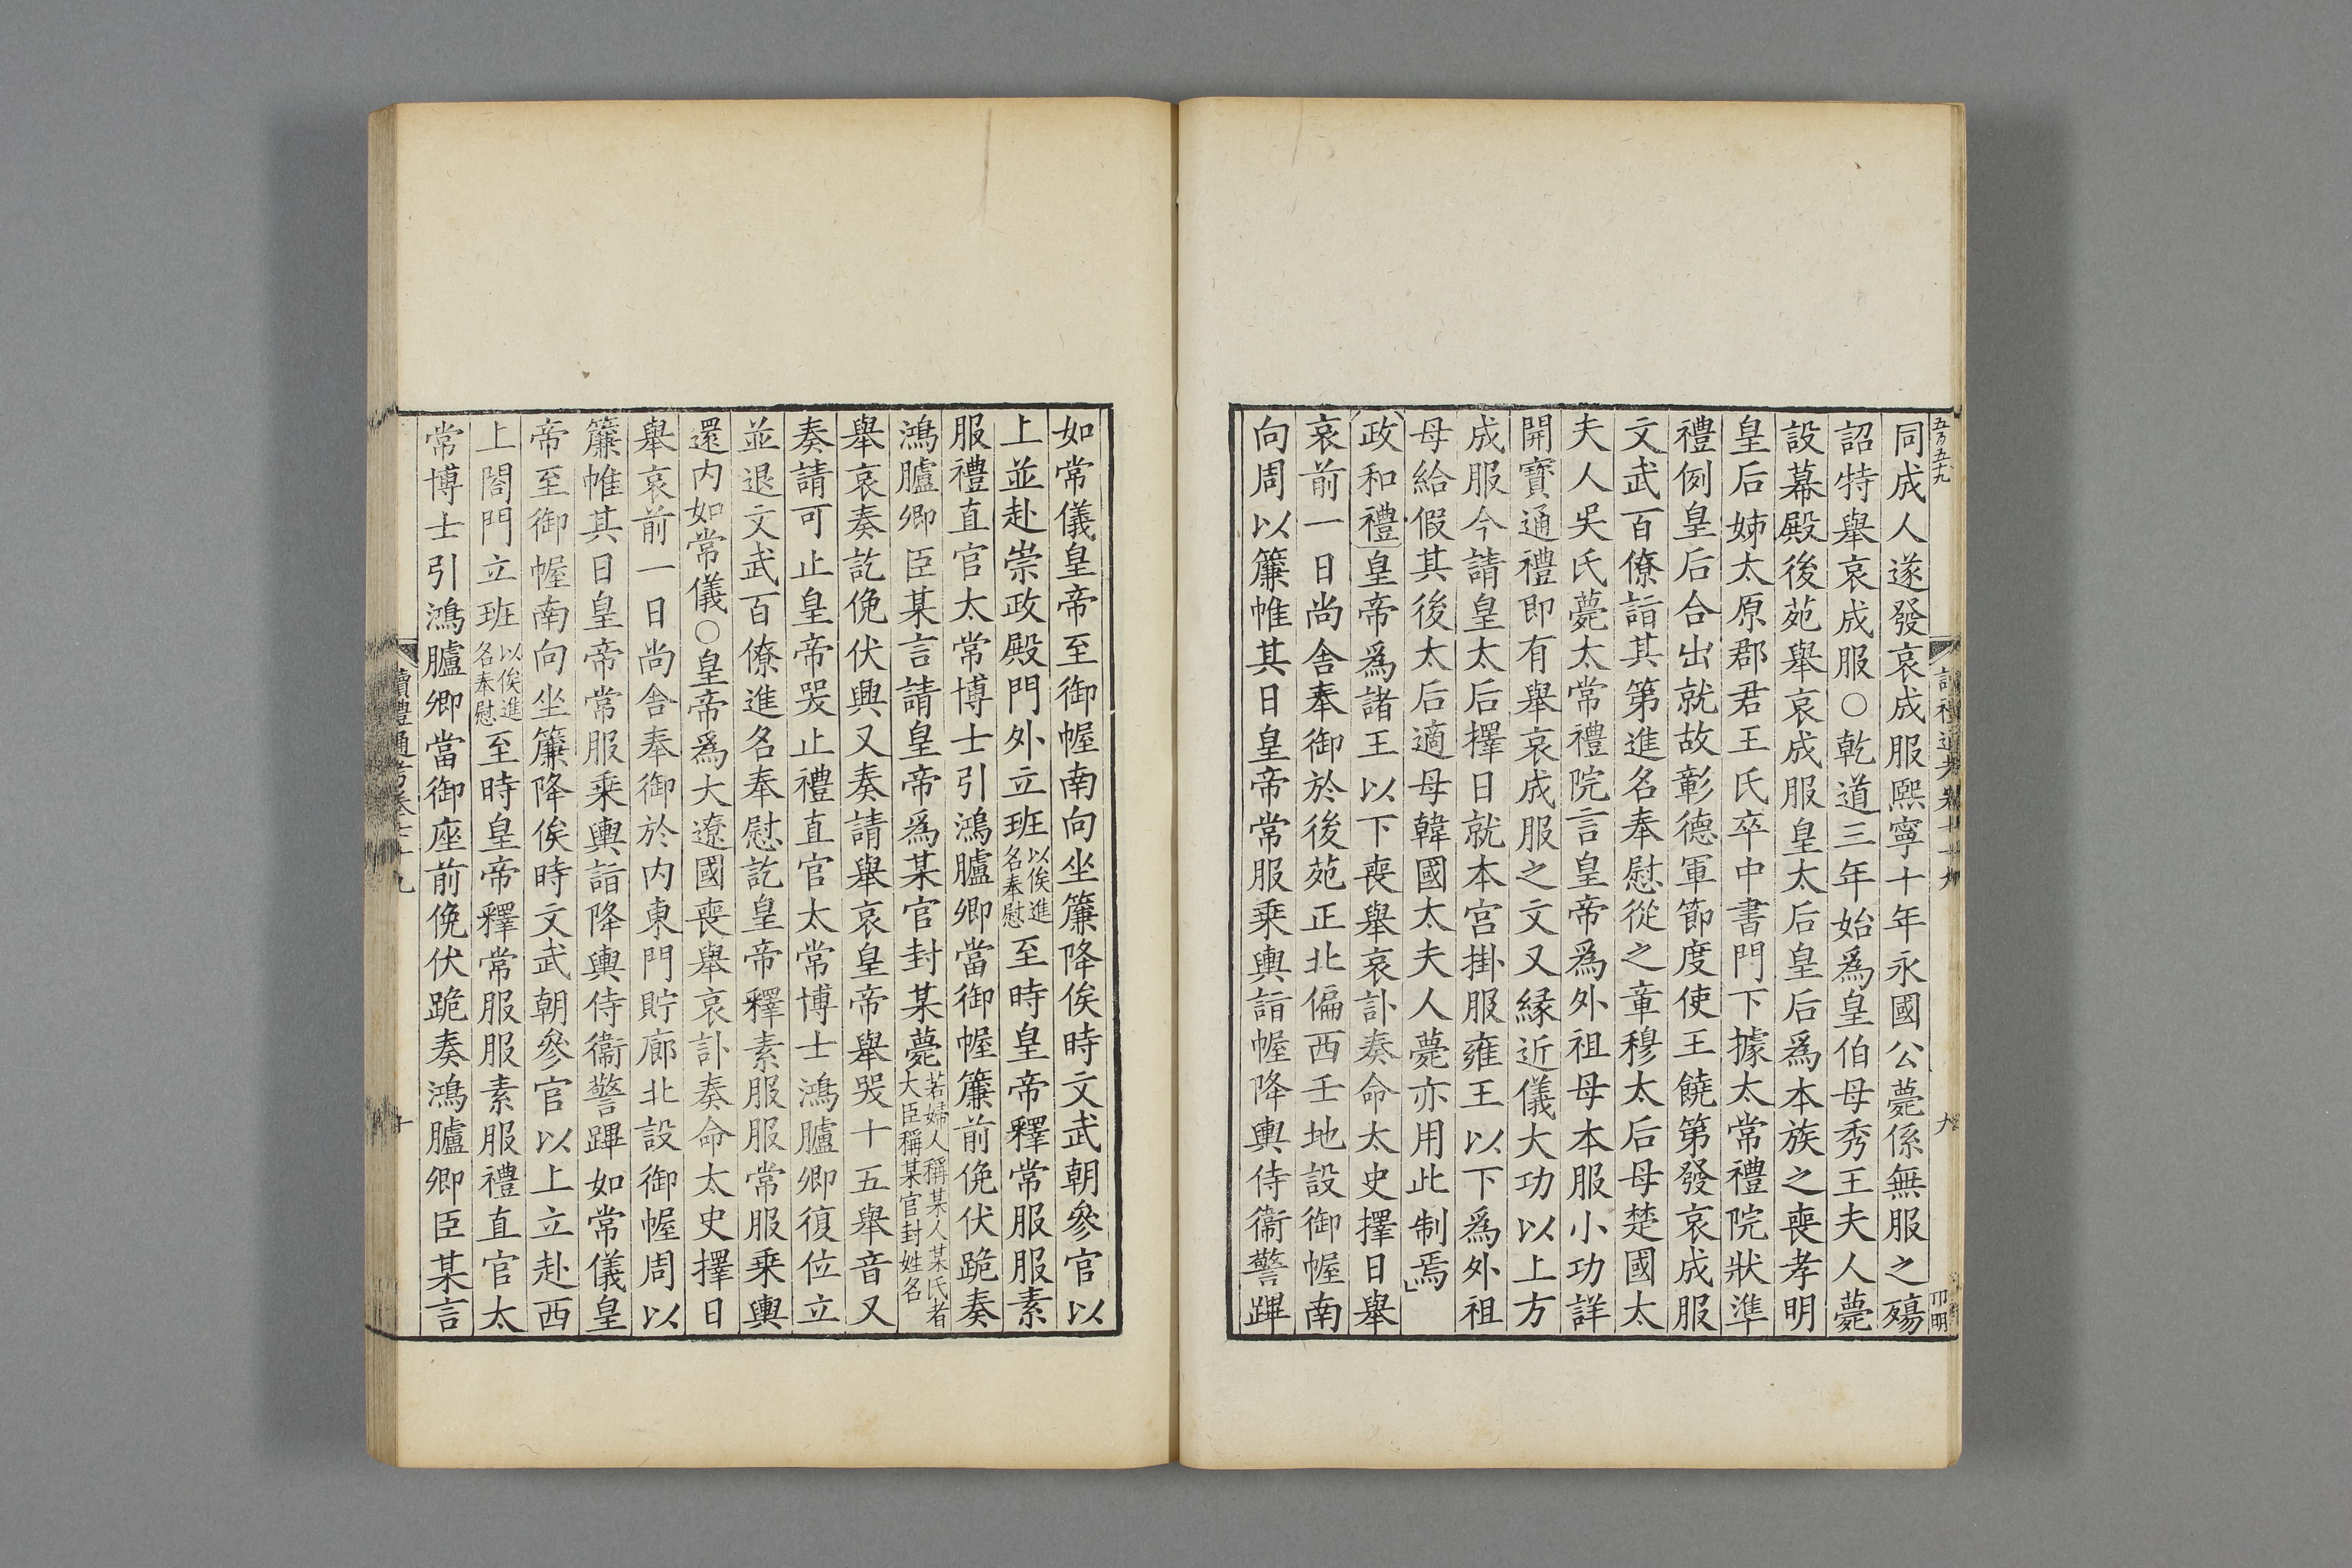 同成人遂發哀成服熙寧十年永國公薨係無服之殤
詔特舉哀成服○乾道三年始爲皇伯母秀王夫人薨
設幕殿後苑舉哀成服皇太后皇后爲本族之喪孝明
皇后姊太原郡君王氏卒中書門下據太常禮院狀準
禮例皇后合出就故彰德軍節度使王饒第發哀成服
文武百僚詣其第進名奉慰從之章穆太后母楚國太
夫人吳氏薨太常禮院言皇帝爲外祖母本服小功詳
開寶通禮即有舉哀成服之文又縁近儀大功以上方
成服今請皇太后擇日就本宫掛服雍王以下爲外祖
母給假其後太后適母韓國太夫人薨亦用此制焉
政和禮皇帝爲諸王以下喪舉哀訃奏命太史擇日舉
哀前一日尚舍奉御於後苑正北偏西壬地設御幄南
向周以簾帷其日皇帝常服乘輿詣幄降輿侍衞警蹕
如常儀皇帝至御幄南向坐簾降俟時文武朝參官以
上並赴崇政殿門外立班以俟進名奉慰至時皇帝釋常服服素
服禮直官太常博士引鴻臚卿當御幄簾前俛伏跪奏
鴻臚卿臣某言請皇帝爲某官封某薨若婦人稱某人某氏者大臣稱某官封姓名
舉哀奏訖俛伏興又奏請舉哀皇帝舉哭十五舉音又
奏請可止皇帝哭止禮直官太常博士鴻臚卿復位立
並退文武百僚進名奉慰訖皇帝釋素服服常服乘輿
還内如常儀○皇帝爲大遼國喪舉哀訃奏命太史擇日
舉哀前一日尚舍奉御於内東門貯廊北設御幄周以
簾帷其日皇帝常服乘輿詣降輿侍衞警蹕如常儀皇
帝至御幄南向坐簾降俟時文武朝參官以上立赴西
上閤門立班以俟進名奉慰至時皇帝釋常服服素服禮直官太
常博士引鴻臚卿當御座前俛伏跪奏鴻臚卿臣某言